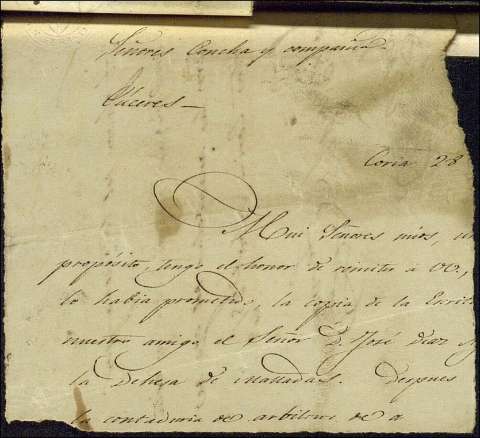 Señores Concha y compañia
Cáceres_
Coria 28
Mui Señores mios, un
propósito, tengo el honor de remitir á VV.,
lo habia prometido, la copia de la Escrit
nuestro amigo el Señor D. José Diaz y
la Dehesa de Matladas. Despues
la contaduria de arbitrios de a